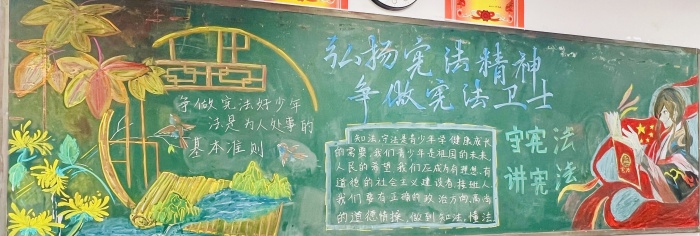 争做宪法好少年
法是为人处事的
基本准则
弘扬宪法精神
争做宪法卫士
知法,守法是青少年学健康成长
的需要,我们青少年是祖国的未来,
人民的希望,我们应成为有理想,有
道德的社会主义建设者接班人,
我们要有正确的政治方向,高尚
的道德情操,做到知法,懂法
守宪法
讲宪法